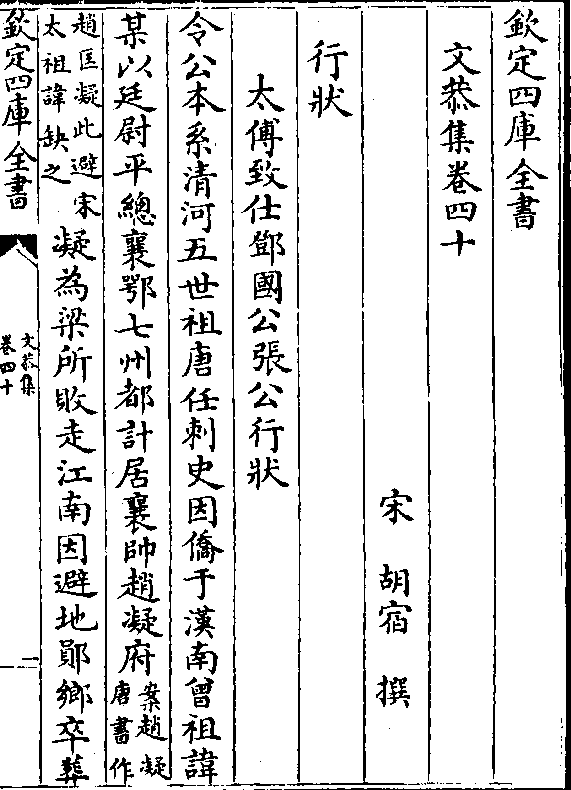 欽定四庫全書
文恭集卷四十
宋 胡宿 撰
行狀
太傅致仕鄧國公張公行狀
令公本系清河五世祖唐任刺史因僑于漢南曾祖諱
某以廷尉平總襄鄂七州都計居襄帥趙凝府案趙凝
唐書作
趙匡凝此避宋
太祖諱缺之凝為梁所敗走江南因避地鄖鄉卒葬
欽定四庫全書
文恭集
卷四十
一